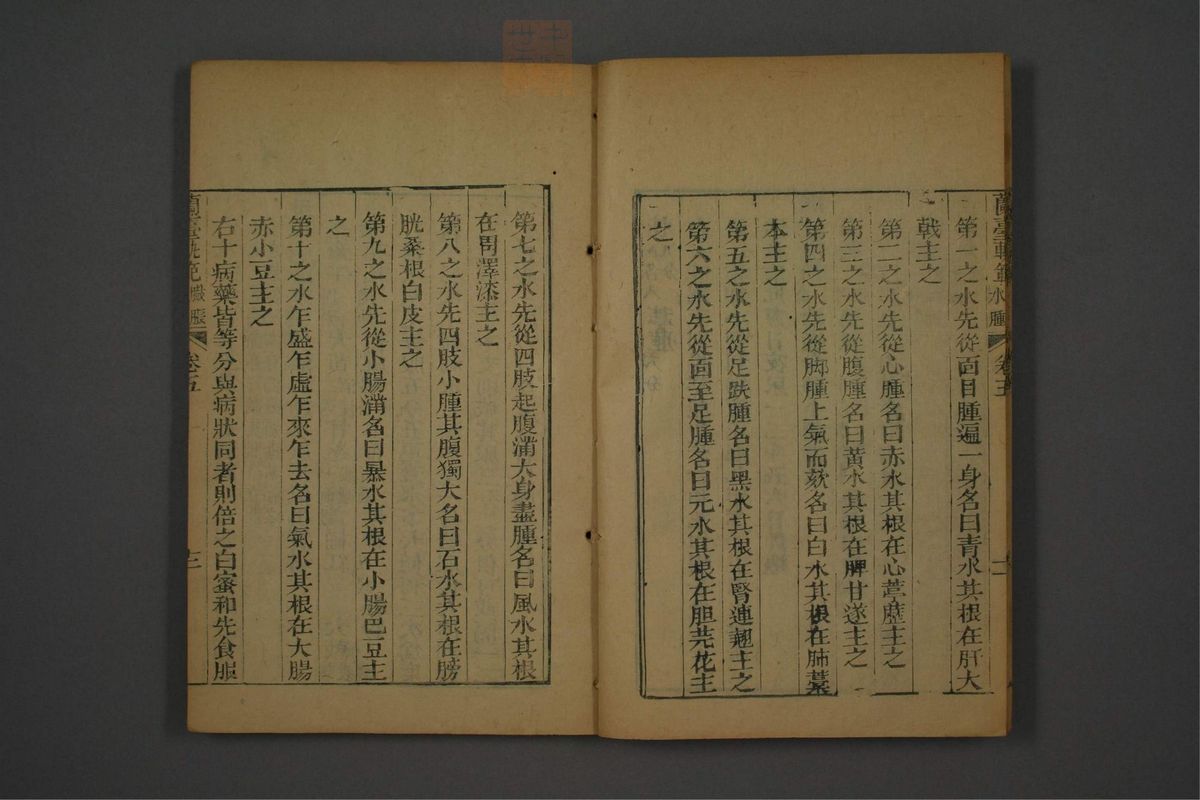 蘭臺軌範 水腫 卷五 十二
第一之水先從面目腫遍一身名曰青水其根在肝大
戟主之
第二之水先從心腫名曰赤水其根在心葶藶主之
第三之水先從腹腫名曰黃水其根在脾甘遂主之
第四之水先從脚腫上氣而欬名曰白水其根在肺藁
本主之
第五之水先從足趺腫名曰黑水其根在腎連翹主之
第六之水先從面至足腫名曰元水其根在胆芫花主
之
第七之水先從四肢起腹滿大身盡腫名曰風水其根
在胃澤漆主之
第八之水先四肢小腫其腹獨大名曰石水其根在膀
胱桒根白皮主之
第九之水先從小腸滿名曰暴水其根在小腸巴豆主
之
第十之水乍盛乍虛乍來乍去名曰氣水其根在大腸
赤小豆主之
右十病藥皆等分與病狀同者則倍之白蜜和先食服
蘭臺軌範 卷五